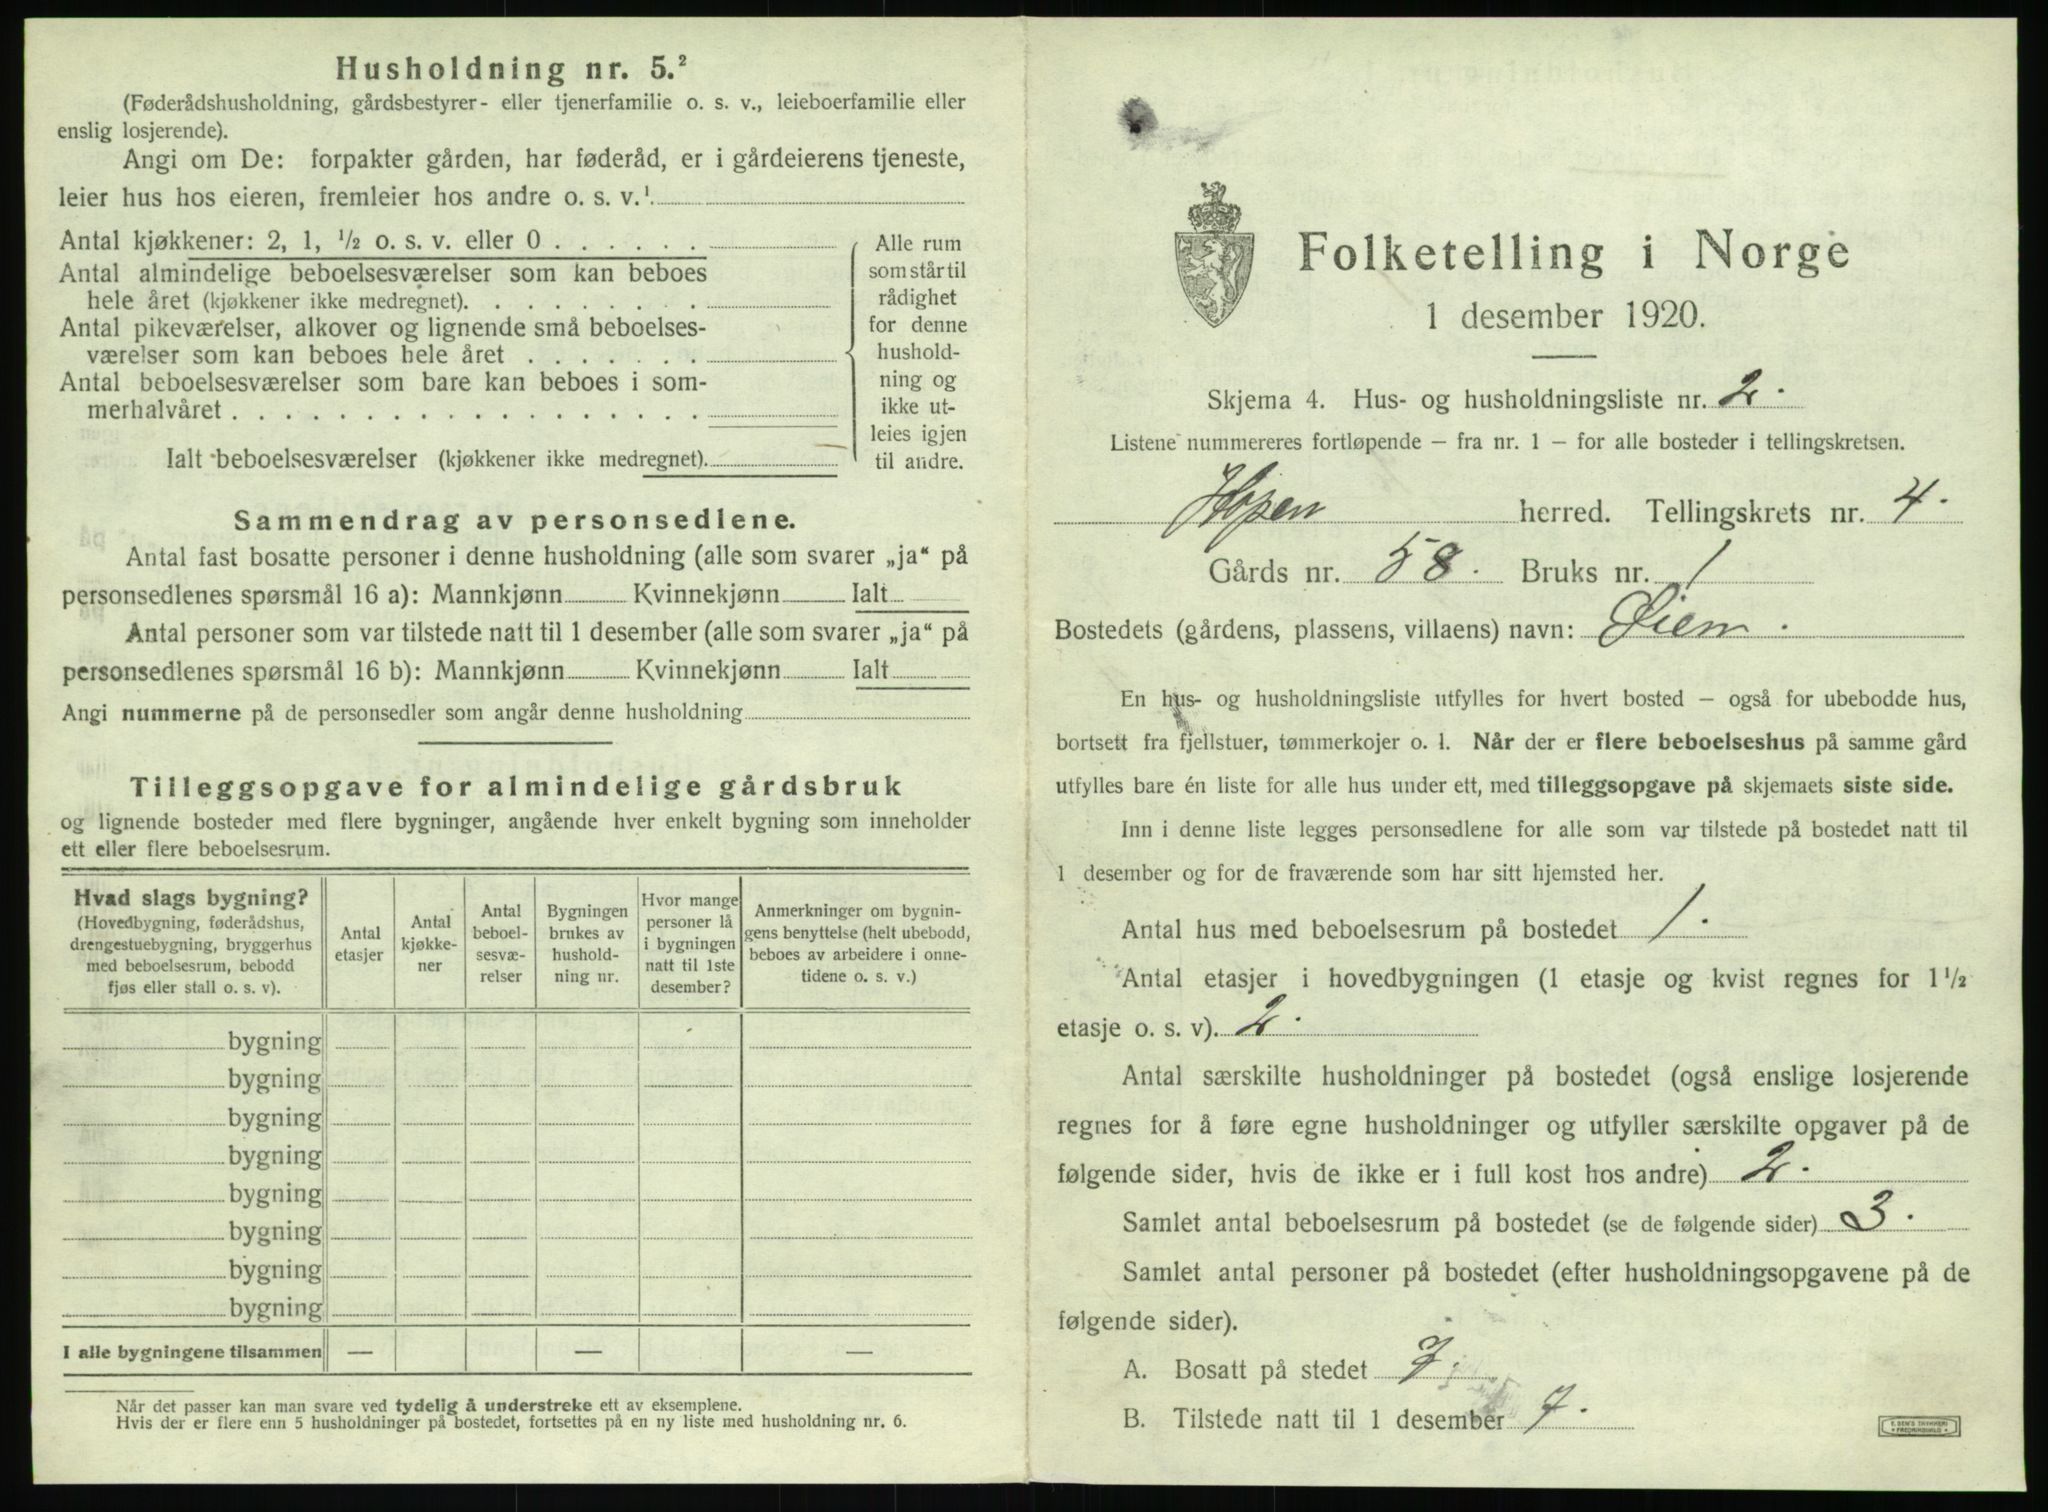 Husholdning nr. 5.²
(Føderådshusholdning, gårdsbestyrer- eller tjenerfamilie o. s. v., leieboerfamilie eller
enslig losjerende).
Angi om De: forpakter gården, har føderåd, er i gårdeierens tjeneste,
leier hus hos eieren, fremleier hos andre o. s. v.¹
Antal kjøkkener: 2, 1, ½ o. s. v. eller 0 . . . . . .
Antal almindelige beboelsesværelser som kan beboes
hele året (kjøkkener ikke medregnet). . . . . . . . .
Antal pikeværelser, alkover og lignende små beboelses-
værelser som kan beboes hele året . . . . . . .
Antal beboelsesværelser som bare kan beboes i som-
merhalvåret . . . . . . . . . . . . . . . . . .
Ialt beboelsesværelser (kjøkkener ikke medregnet).
Alle rum
som står til
rådighet
for denne
hushold-
ning og
ikke ut-
leies igjen
til andre.
Sammendrag av personsedlene.
Antal fast bosatte personer i denne husholdning (alle som svarer „ja“ på
personsedlenes spørsmål 16 a): Mannkjønn Kvinnekjønn Ialt
Antal personer som var tilstede natt til 1 desember (alle som svarer „ja“ på
personsedlenes spørsmål 16 b): Mannkjønn Kvinnekjønn Ialt
Angi nummerne på de personsedler som angår denne husholdning
Tilleggsopgave for almindelige gårdsbruk
og lignende bosteder med flere bygninger, angående hver enkelt bygning som inneholder
ett eller flere beboelsesrum.
Hvad slags bygning?
(Hovedbygning, føderådshus,
drengestuebygning, bryggerhus
med beboelsesrum, bebodd
fjøs eller stall o. s. v).
Antal
etasjer
Antal
kjøkke-
ner
Antal
beboel-
sesvæ-
relser
Bygningen
brukes av
hushold-
ning nr.
Hvor mange
personer lå
i bygningen
natt til 1ste
desember?
Anmerkninger om bygnin-
gens benyttelse (helt ubebodd,
beboes av arbeidere i onne-
tidene o. s. v.)
bygning
bygning
bygning
bygning
bygning
bygning
bygning
bygning
I alle bygningene tilsammen — — —
Når det passer kan man svare ved tydelig å understreke ett av eksemplene.
Hvis der er flere enn 5 husholdninger på bostedet, fortsettes på en ny liste med husholdning nr. 6.
Folketelling i Norge
1 desember 1920.
Skjema 4. Hus- og husholdningsliste nr. 2.
Listene nummereres fortløpende – fra nr. 1 – for alle bosteder i tellingskretsen.
Hopen herred. Tellingskrets nr. 4.
Gårds nr. 58. Bruks nr. 1
Bostedets (gårdens, plassens, villaens) navn: Øien.
En hus- og husholdningsliste utfylles for hvert bosted – også for ubebodde hus,
bortsett fra fjellstuer, tømmerkojer o. l. Når der er flere beboelseshus på samme gård
utfylles bare én liste for alle hus under ett, med tilleggsopgave på skjemaets siste side.
Inn i denne liste legges personsedlene for alle som var tilstede på bostedet natt til
1 desember og for de fraværende som har sitt hjemsted her.
Antal hus med beboelsesrum på bostedet 1.
Antal etasjer i hovedbygningen (1 etasje og kvist regnes for 1 ½
etasje o. s. v). 2.
Antal særskilte husholdninger på bostedet (også enslige losjerende
regnes for å føre egne husholdninger og utfyller særskilte opgaver på de
følgende sider, hvis de ikke er i full kost hos andre) 2.
Samlet antal beboelsesrum på bostedet (se de følgende sider) 3.
Samlet antal personer på bostedet (efter husholdningsopgavene på de
følgende sider).
A. Bosatt på stedet 7.
B. Tilstede natt til 1 desember 7.